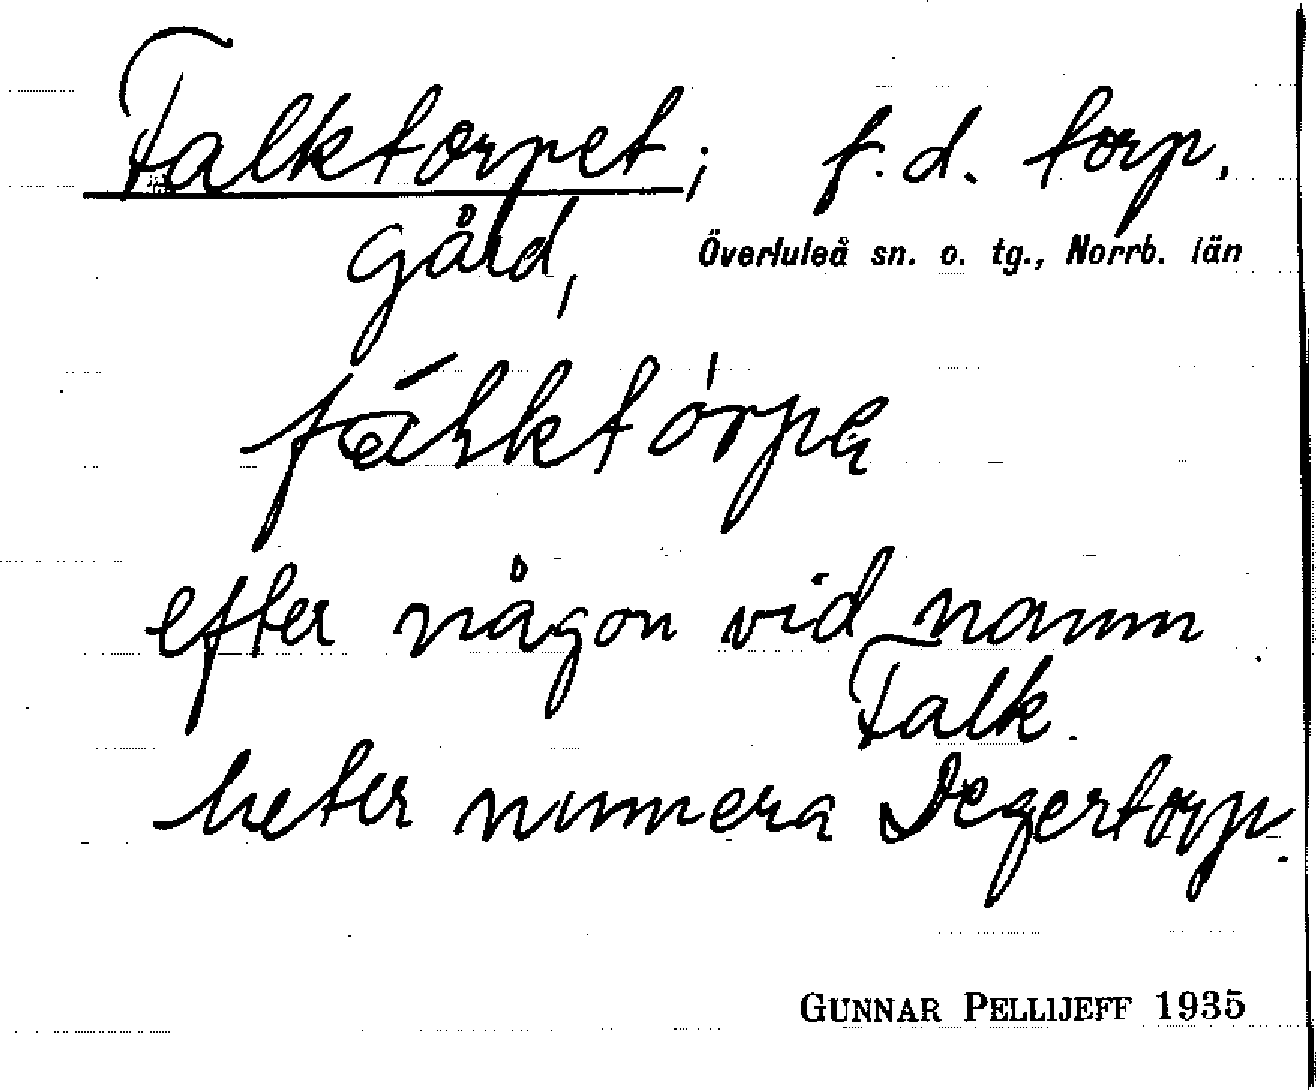 Falktorpet; f.d. torp.
gård, Överluleå sn. o. tg., Norrb. län
efter någon vid namn
Falk.
heter numera Degertorp.
GUNNAR PELLIJEFF 1935